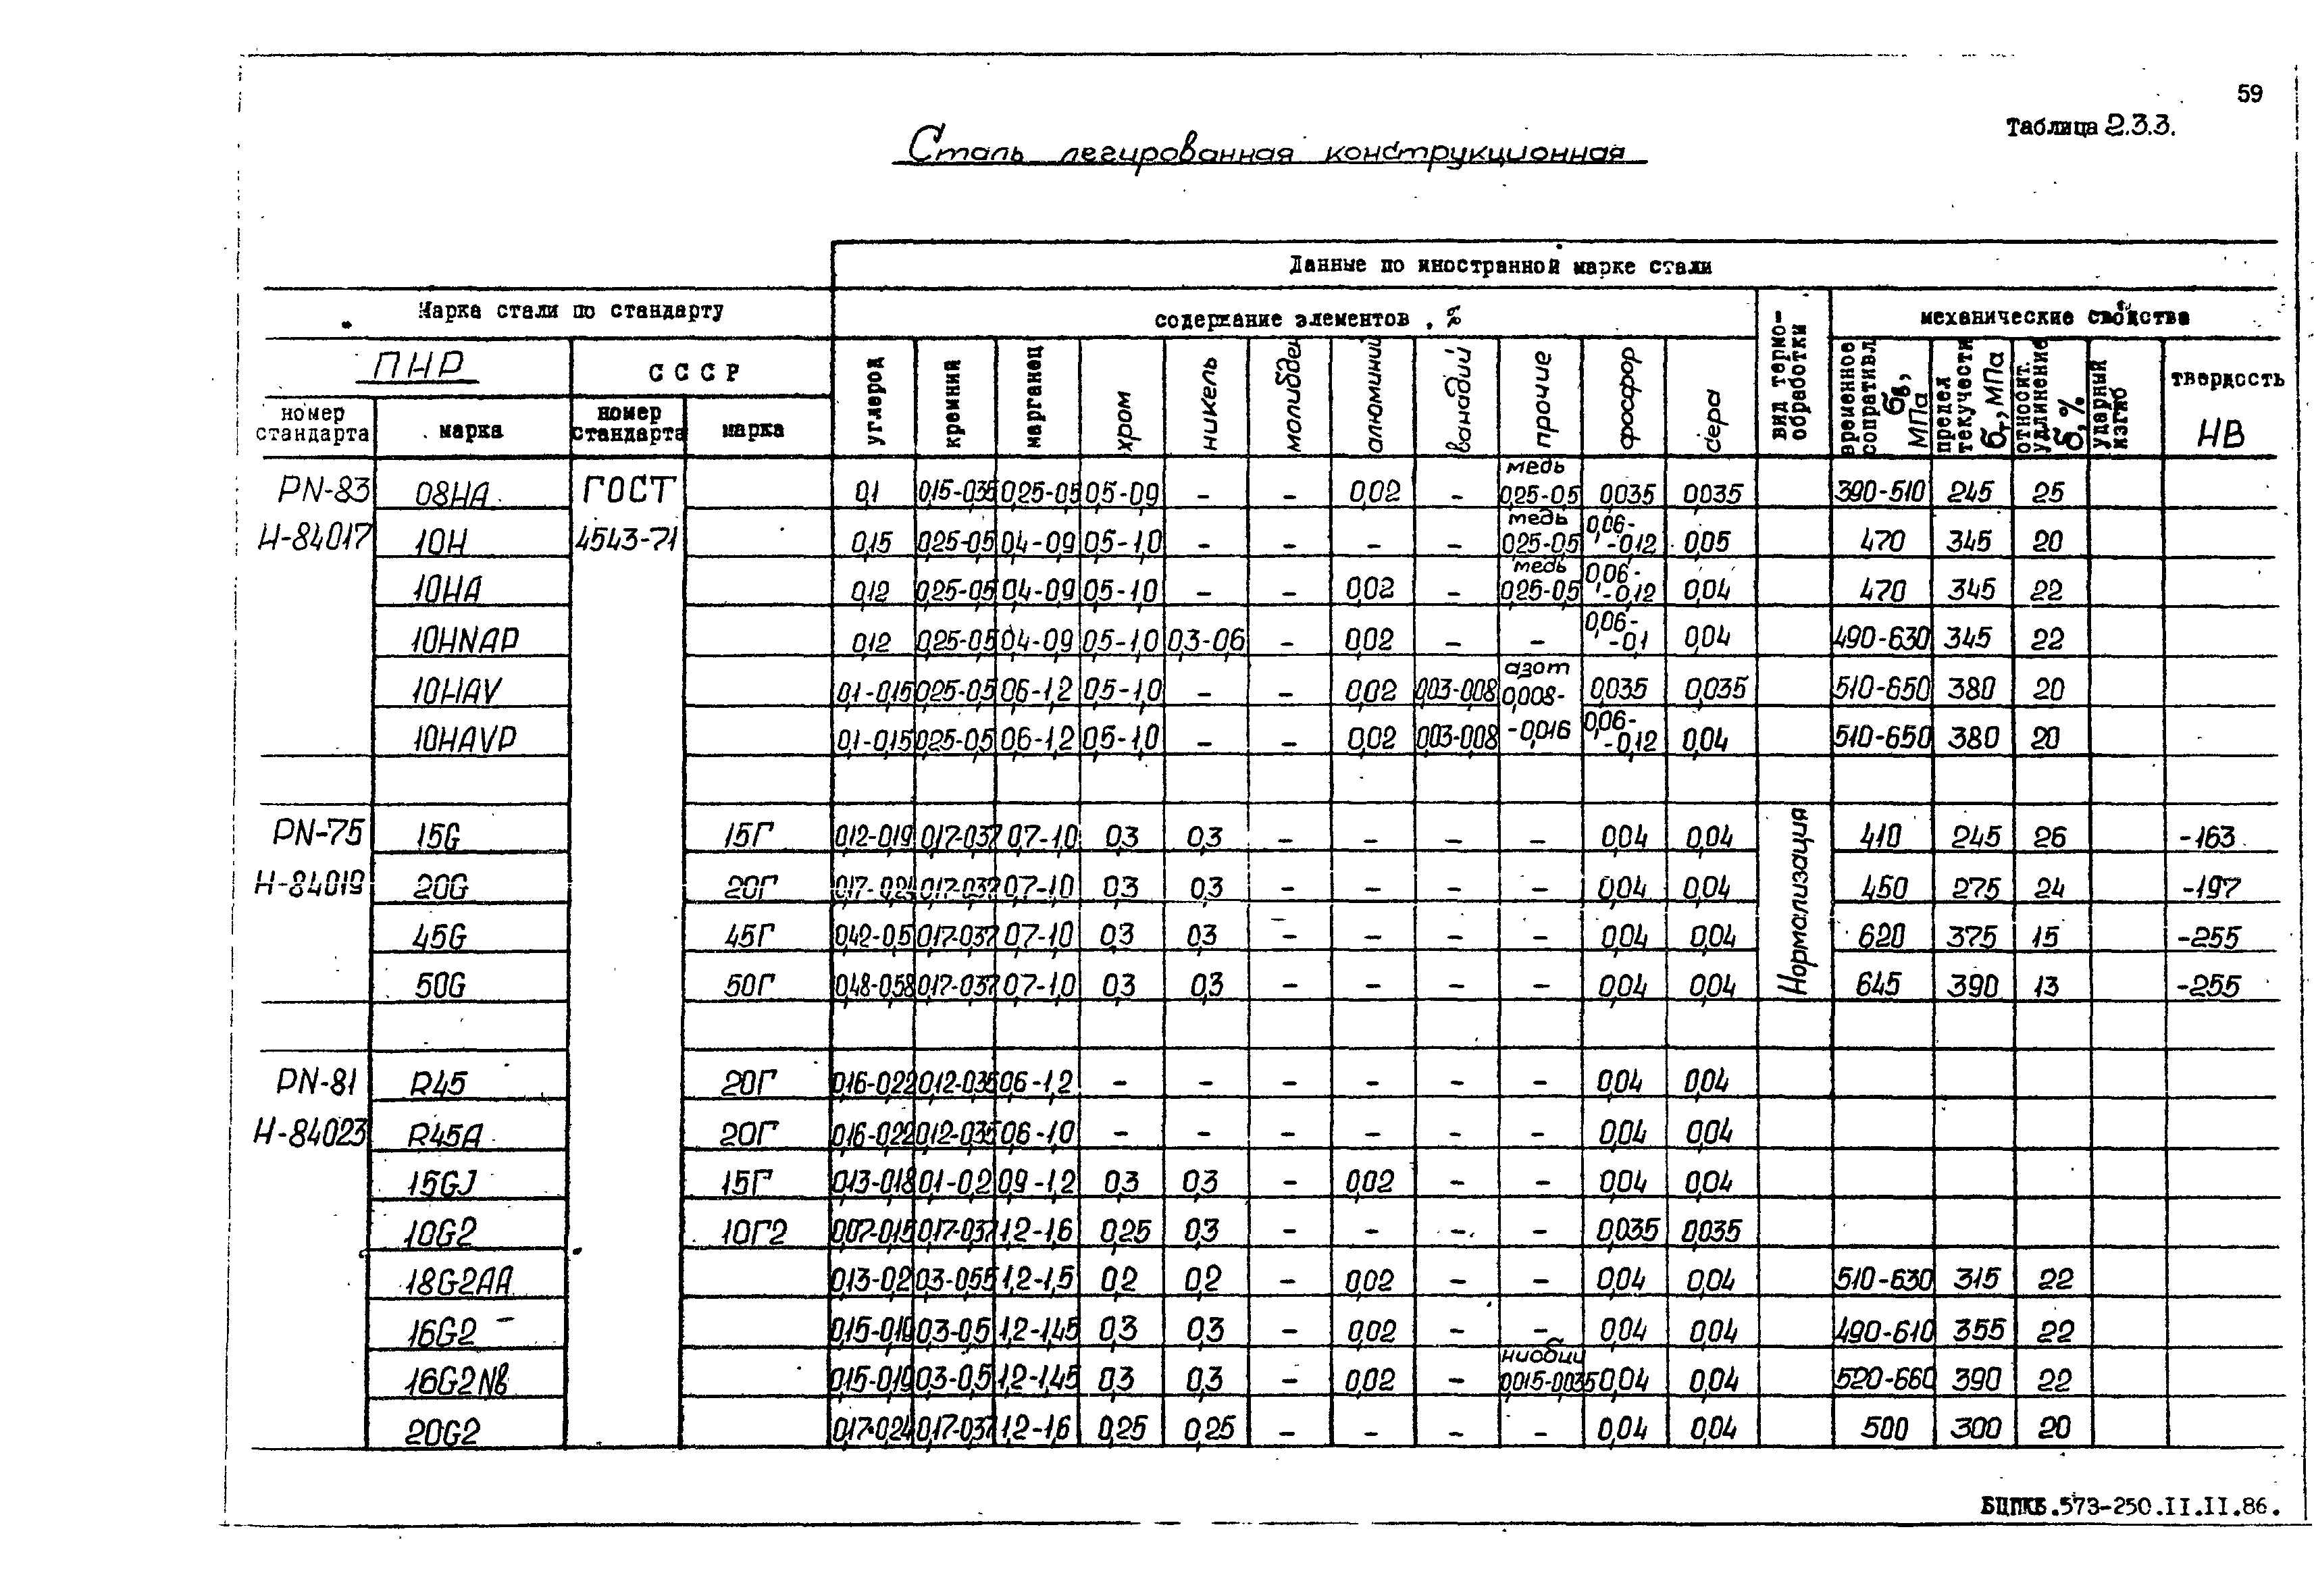 59
Таблица 2.3.3.
Сталь легированная конструкционная
Данные по иностранной марке стали
Марка стали по стандарту
содержание элементов , %
вид термо-обработки
механические свойства
ПНР
СССР
углерод
кремний
марганец
хром
никель
молибден
алюминий
ванадий
прочие
фосфор
сера
временное сопративл. σв, МПа
предел текучести σт, МПа
относит. удлинение δ, %
ударный изгиб
твердость НВ
номер стандарта
марка
номер стандарта
марка
PN-83 08HA ГОСТ 0,1 0,15-0,35 0,25-0,5 0,5-0,9 – – 0,02 – медь 0,25-0,5 0,035 0,035 390-510 245 25
H-84017 10H 4543-71 0,15 0,25-0,5 0,4-0,9 0,5-1,0 – – – – медь 0,25-0,5 0,06--0,12 0,05 470 345 20
10HA 0,12 0,25-0,5 0,4-0,9 0,5-1,0 – – 0,02 – медь 0,25-0,5 0,06--0,12 0,04 470 345 22
10HNAP 0,12 0,25-0,5 0,4-0,9 0,5-1,0 0,3-0,6 – 0,02 – – 0,06--0,1 0,04 490-630 345 22
10HAV 0,1-0,15 0,25-0,5 0,6-1,2 0,5-1,0 – – 0,02 0,03-0,08 азот 0,008- 0,035 0,035 510-650 380 20
10HAVP 0,1-0,15 0,25-0,5 0,6-1,2 0,5-1,0 – – 0,02 0,03-0,08 -0,016 0,06--0,12 0,04 510-650 380 20
Нормализация
PN-75 15G 15Г 0,12-0,19 0,17-0,37 0,7-1,0 0,3 0,3 – – – – 0,04 0,04 410 245 26 -163
H-84019 20G 20Г 0,17-0,24 0,17-0,37 0,7-1,0 0,3 0,3 – – – – 0,04 0,04 450 275 24 -197
45G 45Г 0,42-0,5 0,17-0,37 0,7-1,0 0,3 0,3 – – – – 0,04 0,04 620 375 15 -255
50G 50Г 0,48-0,58 0,17-0,37 0,7-1,0 0,3 0,3 – – – – 0,04 0,04 645 390 13 -255
PN-81 R45 20Г 0,16-0,22 0,12-0,35 0,6-1,2 – – – – – – 0,04 0,04
H-84023 R45A 20Г 0,16-0,22 0,12-0,35 0,6-1,0 – – – – – – 0,04 0,04
15GJ 15Г 0,13-0,18 0,1-0,2 0,9-1,2 0,3 0,3 – 0,02 – – 0,04 0,04
10G2 10Г2 0,07-0,15 0,17-0,37 1,2-1,6 0,25 0,3 – – – – 0,035 0,035
18G2AA 0,13-0,2 0,3-0,55 1,2-1,5 0,2 0,2 – 0,02 – – 0,04 0,04 510-630 315 22
16G2 0,15-0,19 0,3-0,5 1,2-1,45 0,3 0,3 – 0,02 – – 0,04 0,04 490-610 355 22
16G2Nb 0,15-0,19 0,3-0,5 1,2-1,45 0,3 0,3 – 0,02 – ниобий 0,015-0,035 0,04 0,04 520-660 390 22
20G2 0,17-0,24 0,17-0,37 1,2-1,6 0,25 0,25 – – – – 0,04 0,04 500 300 20
БЦПКБ.573-250.II.II.86.